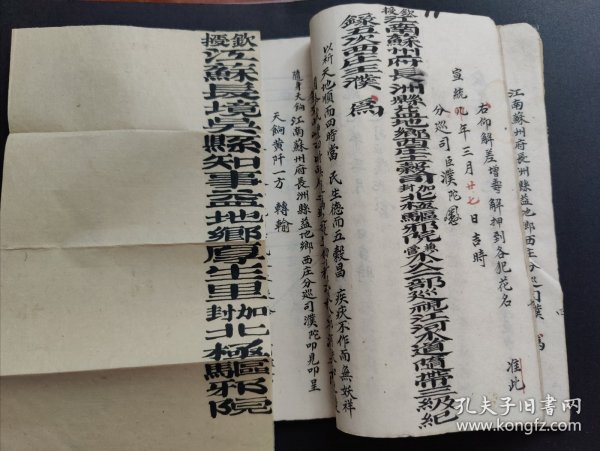 江南蘇州府長洲縣益地鄉西庄分巡司濮 為
准此
右仰解差增壽解押到各犯花名
宣統九年三月廿七日吉時
分巡司臣濮陀
欽授江南蘇州府長洲縣益地鄉西庄土穀司加封北極驅邪院兼管水公部巡視江河水道隨帶三級紀
錄五次西庄土濮 為
以祈 天地順而四時當 民生德而五穀昌 疾疢不作而無妖祥
隨身天餉 江南蘇州府長洲縣益地鄉西庄分巡司濮陀叩見叩呈
天餉黄阡一方 轉輸
欽授江蘇長境吳縣知事益地鄉厚生里加封北極驅邪院
孔夫子旧书网
www.kongfz.com